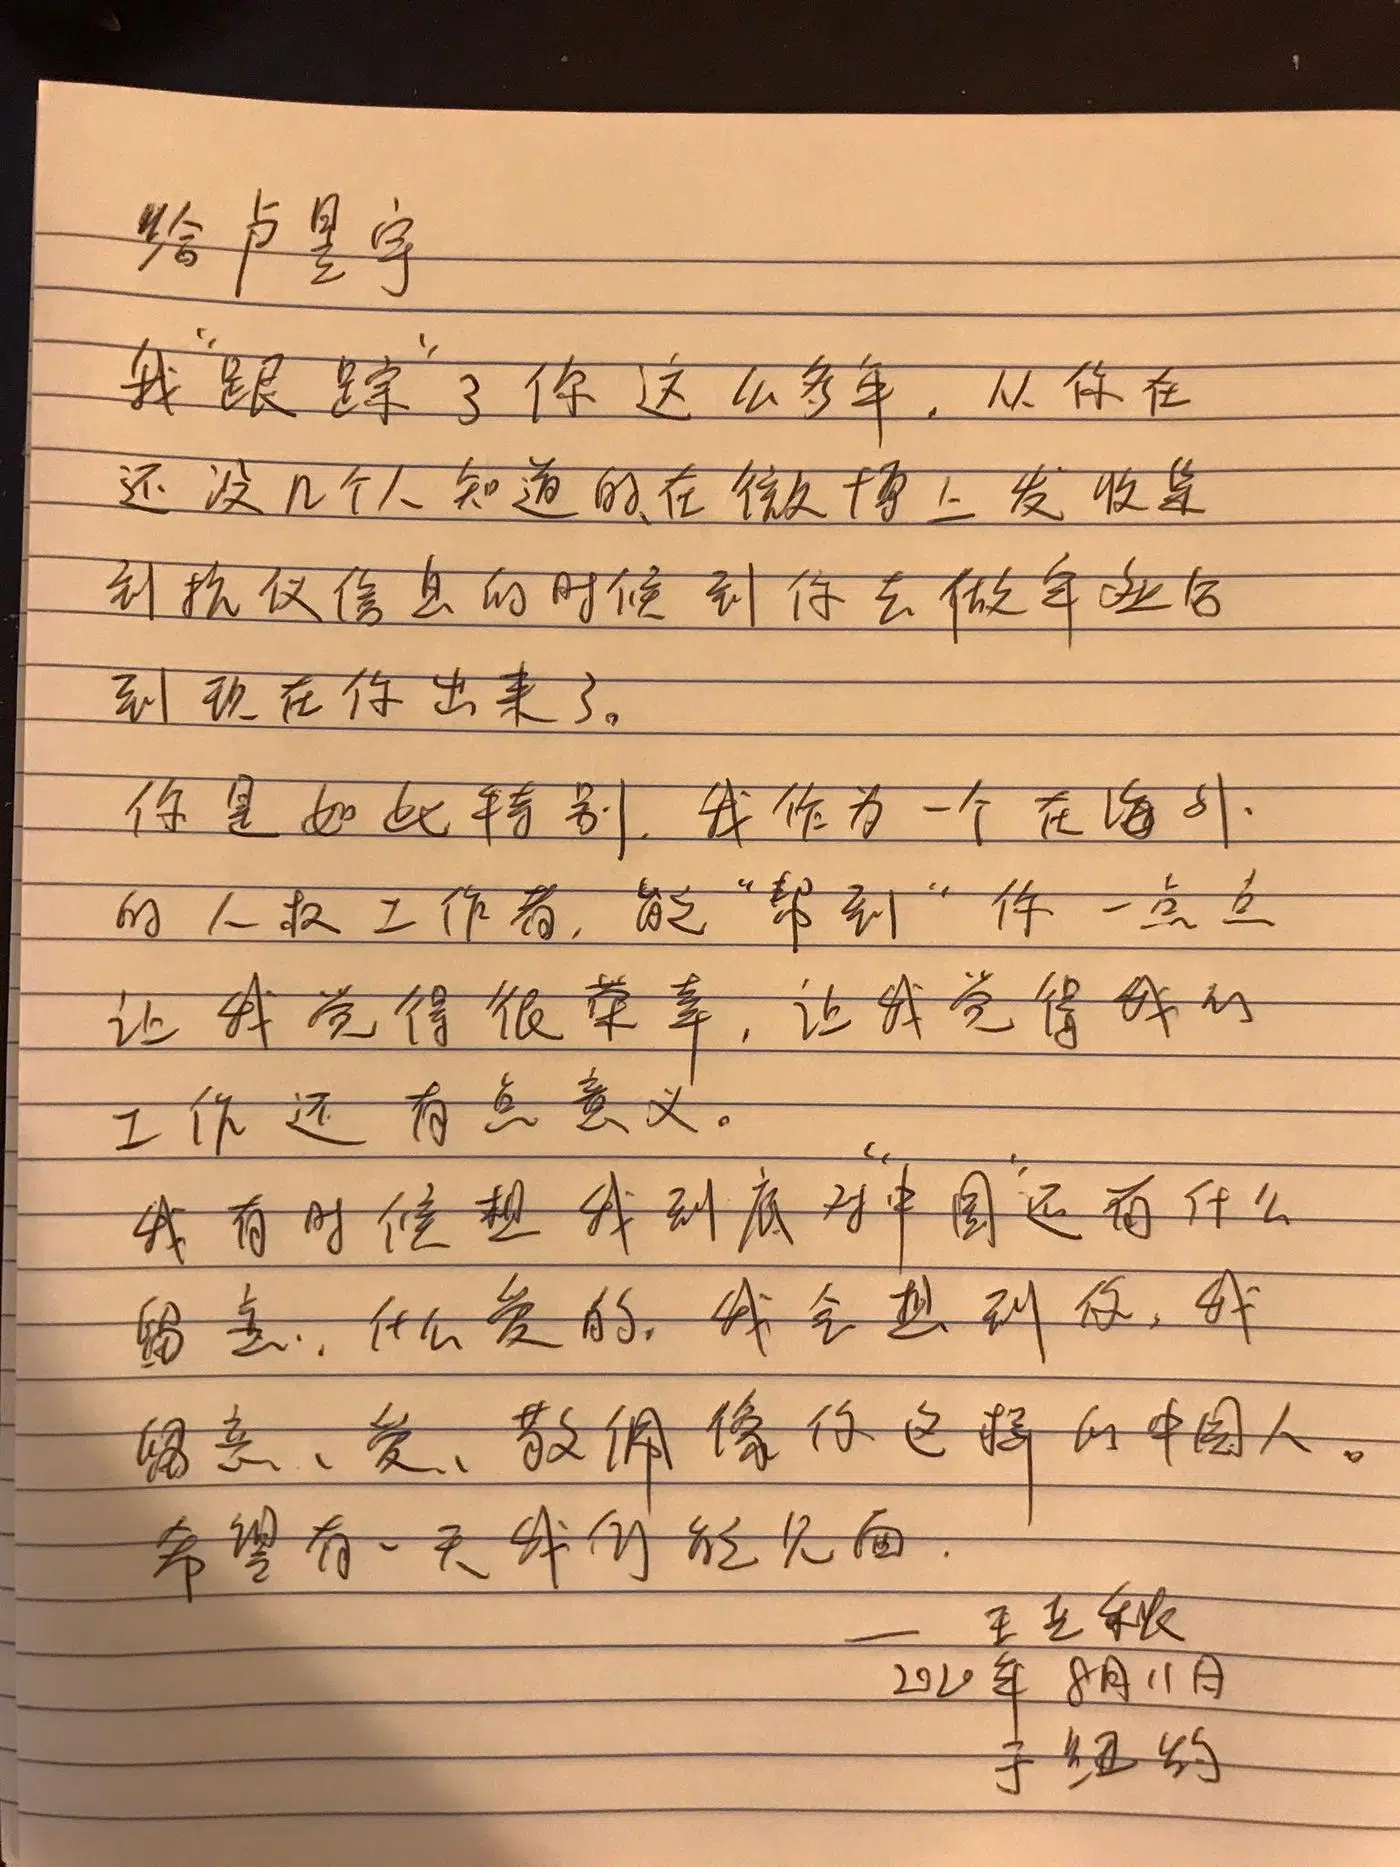 给卢昱宇
我“跟踪”了你这么多年，从你在
还没几个人知道的、在微博上发收集
到抗议信息的时候到你去做年业后
到现在你出来了。
你是如此特别，我作为一个在海外
的人权工作者，能“帮到”你一点点
让我觉得很荣幸，让我觉得我的
工作还有点意义。
我有时候想我到底对“中国”还有什么
留恋，什么爱的，我会想到你，我
留恋、爱、敬佩像你这样的中国人。
希望有一天我们能见面.
—— 王立秋
2020年8月11日
于纽约